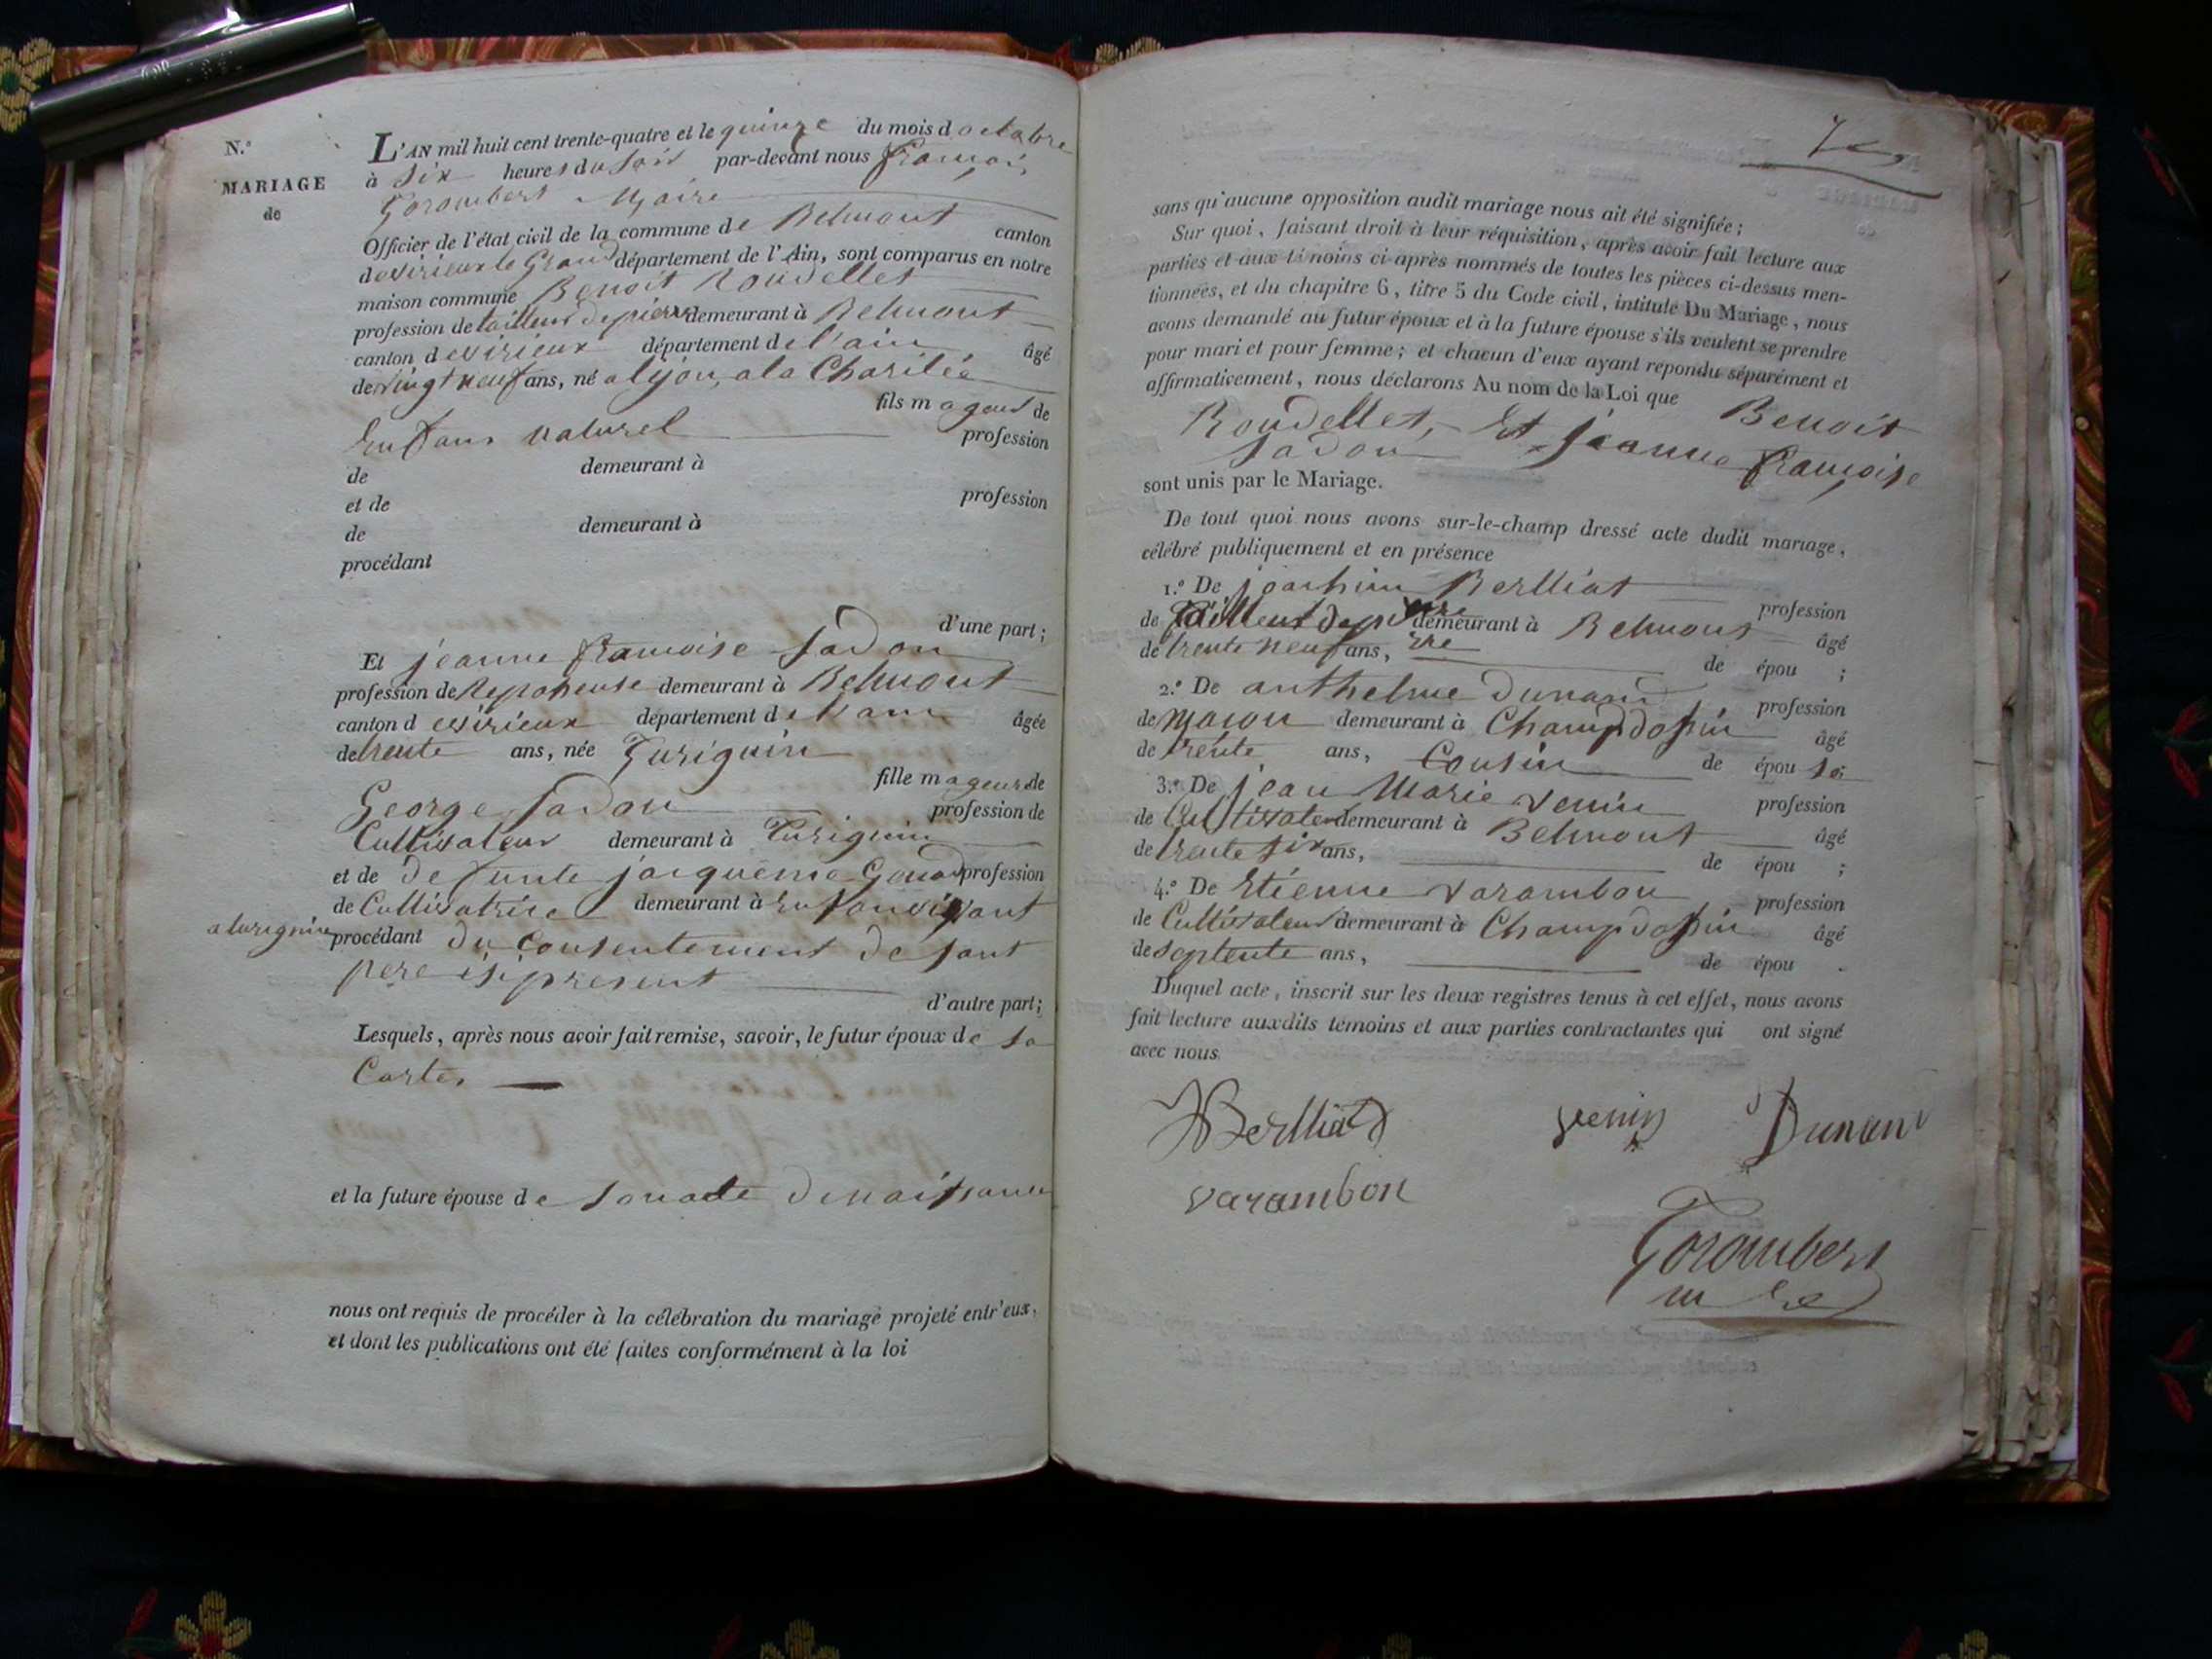 N.°
MARIAGE
de
L'AN mil huit cent trente-quatre et le quinze du mois d octobre
à six heures du soir par-devant nous françois
Gorombert Maire
Officier de l'état civil de la commune de Belmont canton
de virieux le Grand département de l'Ain, sont comparus en notre
maison commune Benoit Roudellet
profession de tailleur de pierre demeurant à Belmont
canton d evirieux département de l'ain âgé
de vingt neuf ans, né a lyon, a la Charitée
fils mageur de
Enfans naturel profession
de demeurant à
et de profession
de demeurant à
procédant
d'une part;
Et jeanne francoise sadon
profession de demeurant à Belmont
canton d evirieux département de l'ain âgée
de trente ans, née
fille mageure de
George sadon profession de
Cultivateur demeurant à
et de defunte jacqueme profession
de Cultivatrice demeurant à En son vivant
procédant du consentement de sont
pere isi present
d'autre part;
Lesquels, après nous avoir fait remise, savoir, le futur époux de sa
Carte,
et la future épouse de son acte de naissance
nous ont requis de procéder à la célébration du mariage projeté entr'eux,
et dont les publications ont été faites conformément à la loi
sans qu'aucune opposition audit mariage nous ait été signifiée;
Sur quoi, faisant droit à leur réquisition, après avoir fait lecture aux
parties et aux témoins ci-après nommés de toutes les pièces ci-dessus men-
tionnées, et du chapitre 6, titre 5 du Code civil, intitulé Du Mariage, nous
avons demandé au futur époux et à la future épouse s'ils veulent se prendre
pour mari et pour femme; et chacun d'eux ayant répondu séparément et
affirmativement, nous déclarons Au nom de la Loi que Benoit
Roudellet, Et jeanne françoise
sadon
sont unis par le Mariage.
De tout quoi nous avons sur-le-champ dressé acte dudit mariage,
célébré publiquement et en présence
1.° De joachim Berlliat profession
de tailleur de pierre demeurant à Belmont âgé
de trente neuf ans, de épou ;
2.° De anthelme Dunand profession
de maçon demeurant à Champdossin âgé
de trente ans, Cousin de épou se
3.° De jean Marie venin profession
de Cultivateur demeurant à Belmont âgé
de trente six ans, de épou ;
4.° De Etienne varambon profession
de Cultivateur demeurant à Champdossin âgé
de septente ans, de épou .
Duquel acte, inscrit sur les deux registres tenus à cet effet, nous avons
fait lecture auxdits témoins et aux parties contractantes qui ont signé
avec nous.
Berlliat venin Dunand
varambon
Gorombert
mre